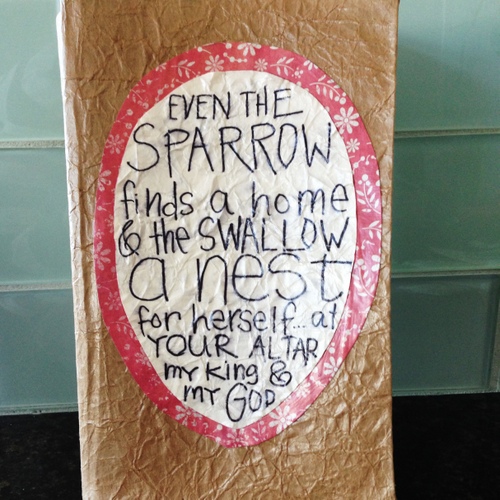 EVEN THE
SPARROW
finds a home
& the SWALLOW
a nest
for herself... at
YOUR ALTAR
my King &
my GOD